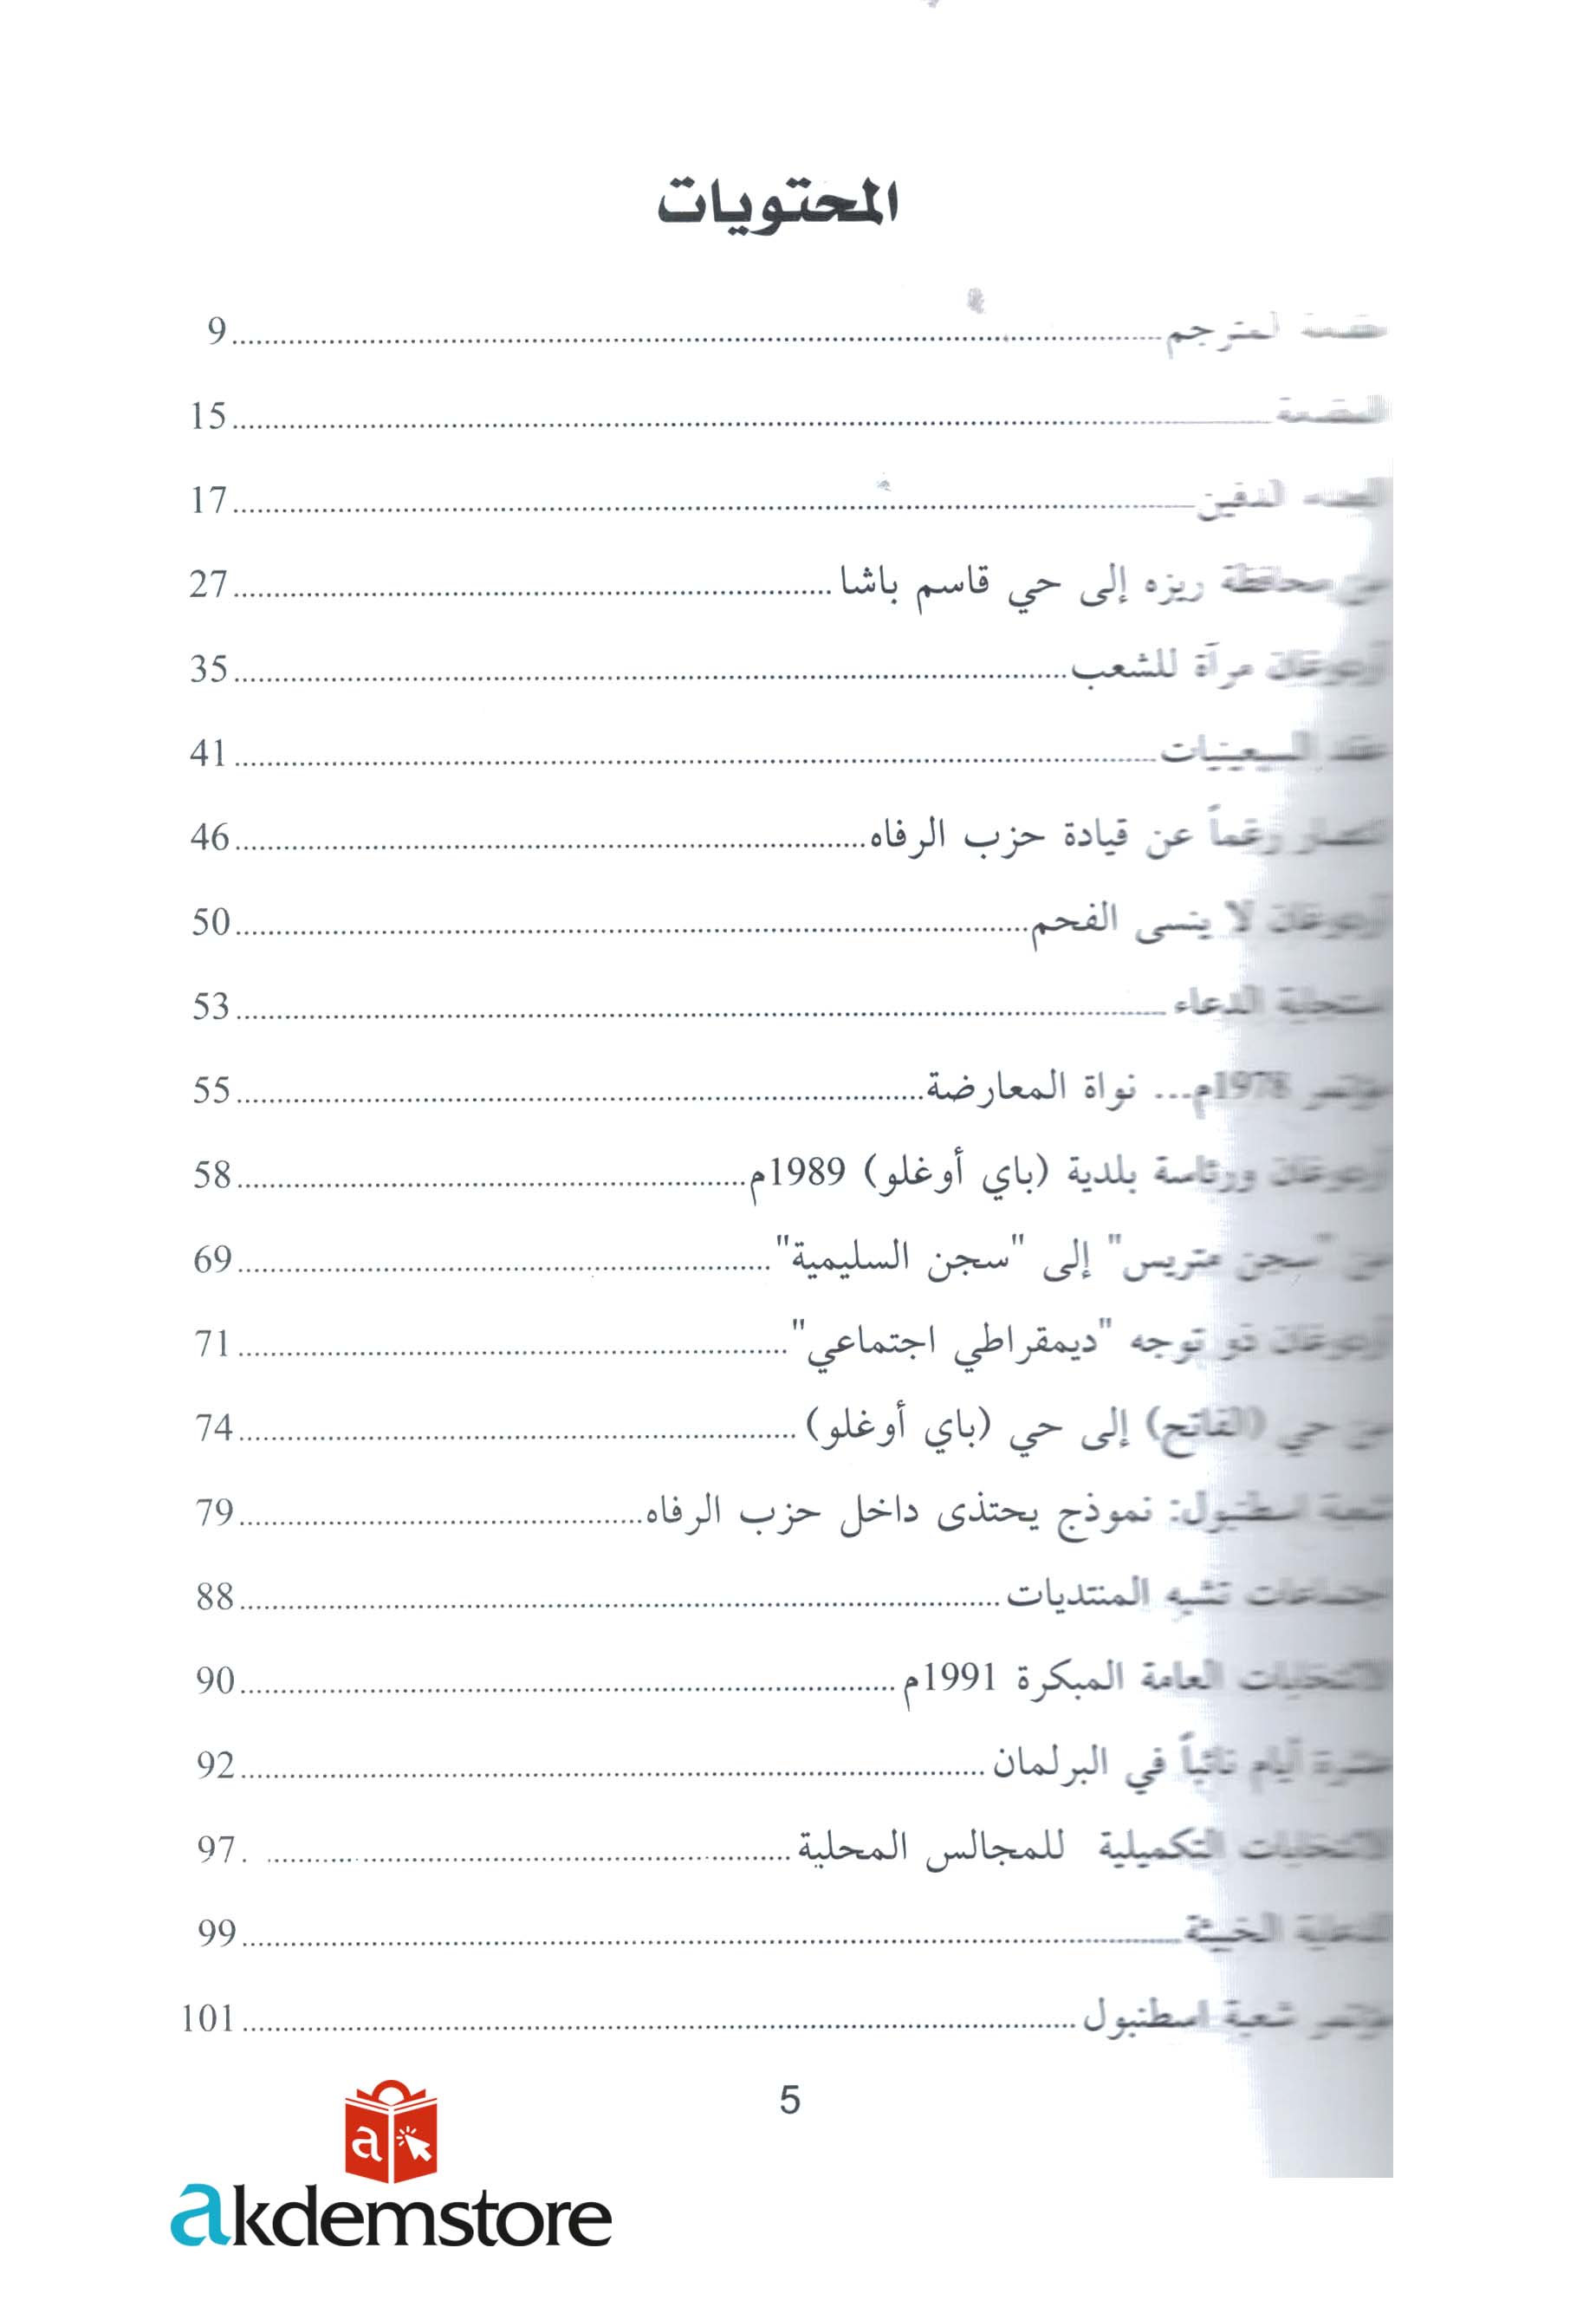 المحتويات
مقدمة المترجم 9
المقدمة 15
الدفين 17
من محافظة ريزه إلى حي قاسم باشا 27
أردوغان مرآة للشعب 35
عقد السبعينيات 41
انتصار رغماً عن قيادة حزب الرفاه 46
أردوغان لا ينسى الفحم 50
استجابة الدعاء 53
مؤتمر 1978م... نواة المعارضة 55
أردوغان ورئاسة بلدية (باي أوغلو) 1989م 58
من "سجن متريس" إلى "سجن السليمية" 69
أردوغان ذو توجه "ديمقراطي اجتماعي" 71
من حي (الفاتح) إلى حي (باي أوغلو) 74
شعبة اسطنبول: نموذج يحتذى داخل حزب الرفاه 79
اجتماعات تشبه المنتديات 88
الانتخابات العامة المبكرة 1991م 90
عشرة أيام نائباً في البرلمان 92
الانتخابات التكميلية للمجالس المحلية 97
الدعاية الخبيثة 99
مؤتمر شعبة اسطنبول 101
5
a
akdemstore